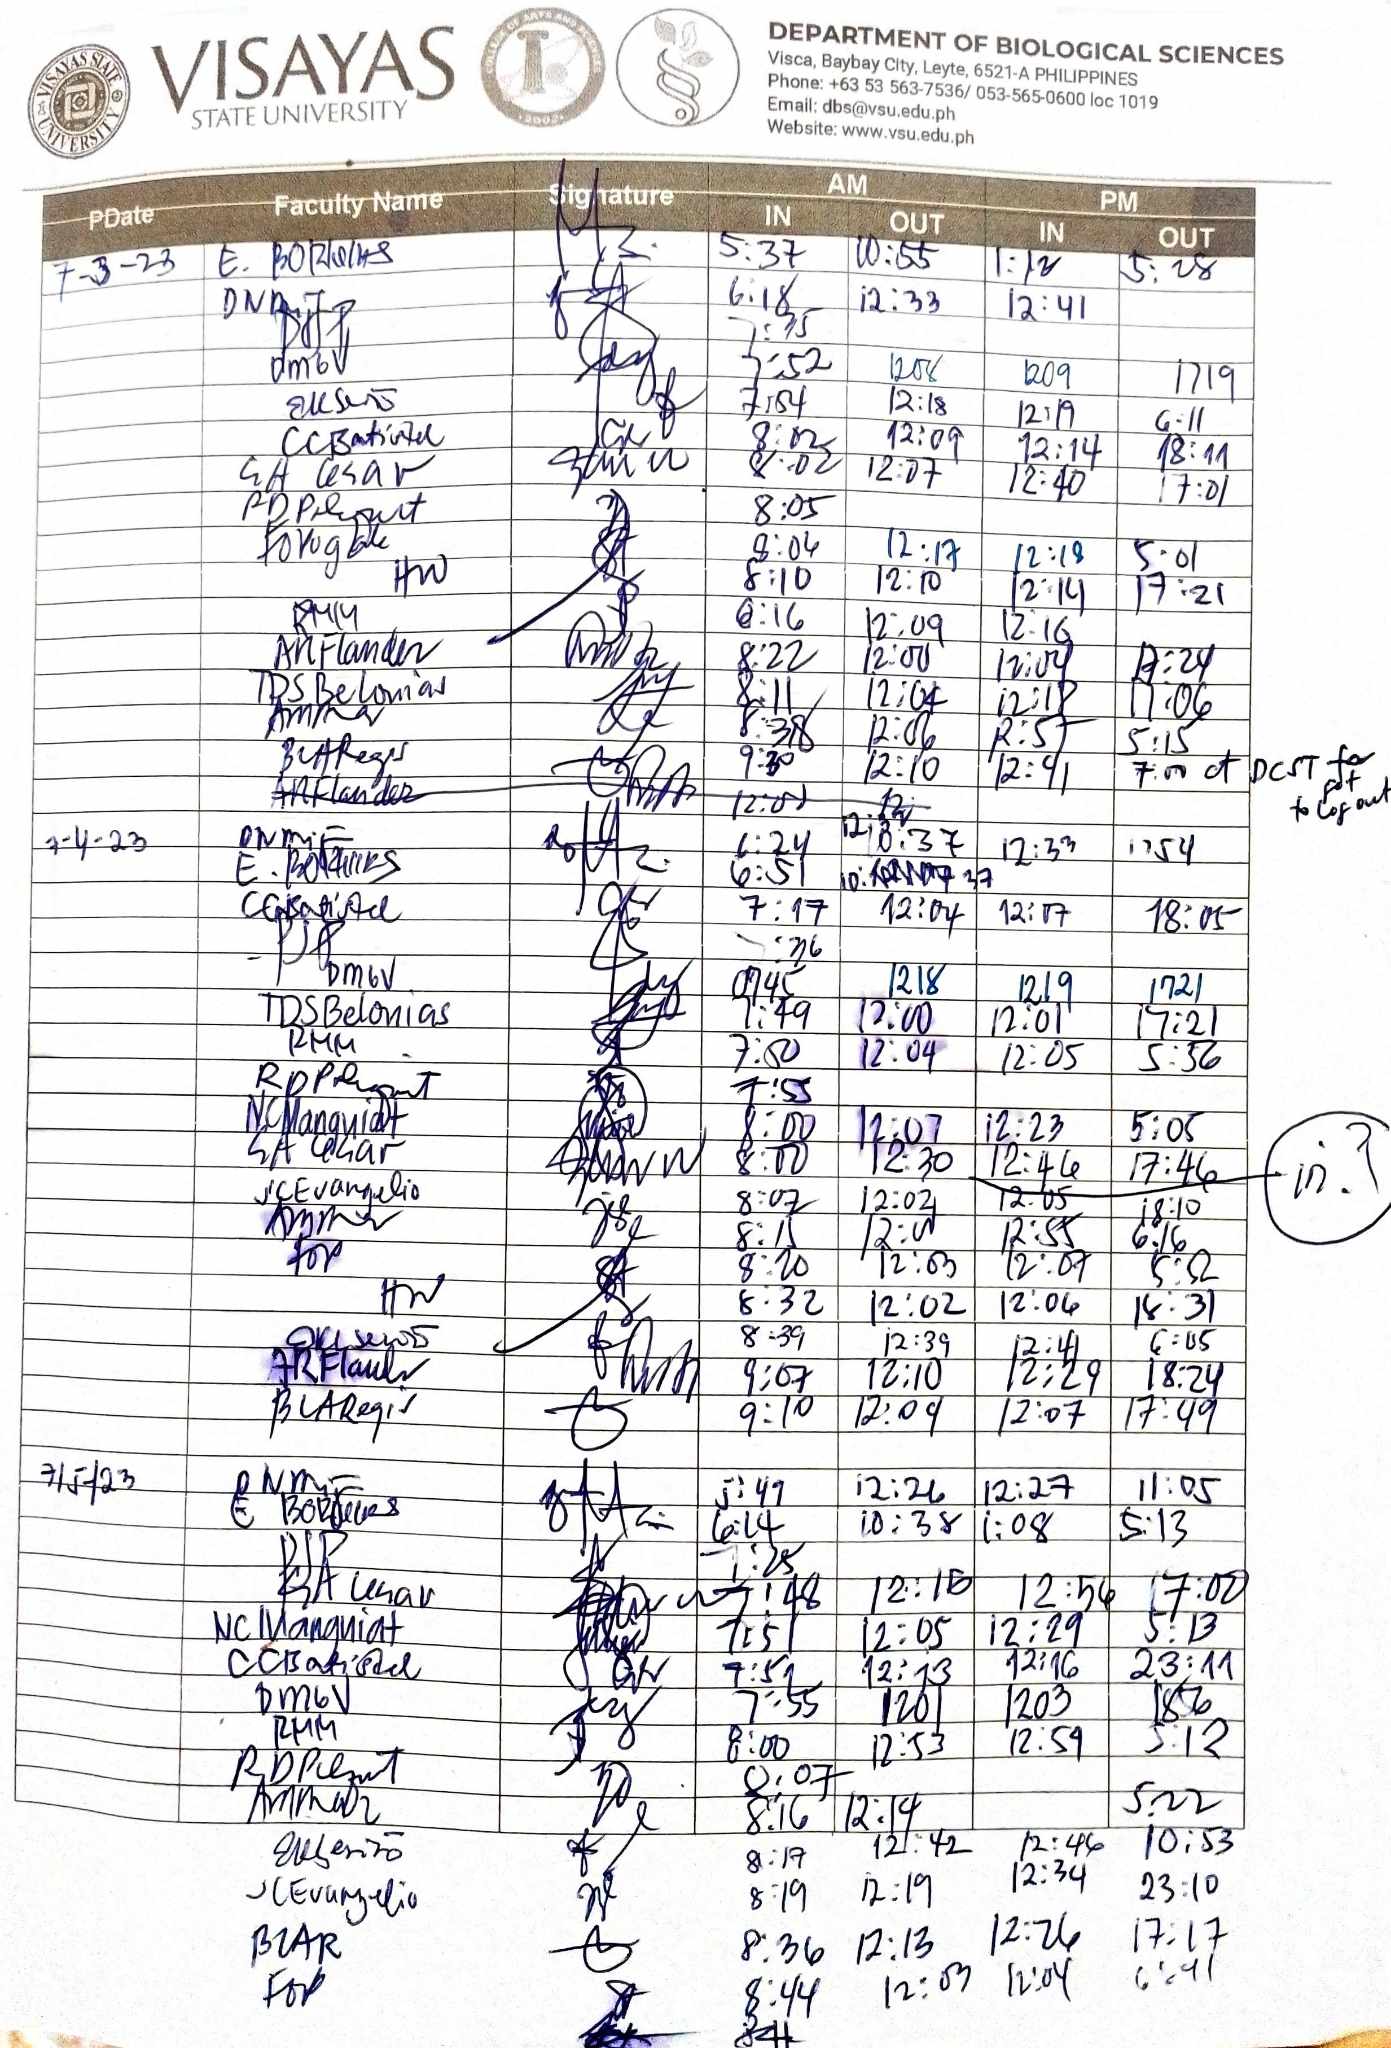 VISAYAS
STATE UNIVERSITY
VISAYAS STATE UNIVERSITY
COLLEGE OF ARTS AND SCIENCES
2002
DEPARTMENT OF BIOLOGICAL SCIENCES
Visca, Baybay City, Leyte, 6521-A PHILIPPINES
Phone: +63 53 563-7536/ 053-565-0600 loc 1019
Email: dbs@vsu.edu.ph
Website: www.vsu.edu.ph
PDate Faculty Name Signature AM PM
IN OUT IN OUT
7-3-23 E. 5:37 10:55 1:12 5:28
6:18 12:33 12:41
DMGV 7:52 1208 1209 1719
7:54 12:18 12:19 6:11
CCBatistel 8:02 12:09 12:14 18:11
GA Cesar 8:02 12:07 12:40 17:01
8:05
8:04 12:17 12:18 5:01
HW 8:10 12:10 12:14 17:21
RMM 8:16 12:09 12:16
ARFlander 8:22 12:00 12:04
TDSBelonias 8:11 12:04 12:18 17:06
12:06 12:57 5:15
BLARegis 9:30 12:10 12:41 7:00 at DCST for got to log out
ARFlander
7-4-23 6:24 12:33 1754
E. 6:51
CCBatistel 7:17 12:04 12:07 18:05
DMGV 0745 1218 1219 1721
TDSBelonias 7:49 12:00 12:01 17:21
RMM 7:50 12:04 12:05 5:36
7:55
NCManguiat 8:00 12:07 12:23 5:05
GA Cesar 8:00 12:30 12:46 17:46 in?
JCEvangelio 8:07 12:02 12:05 18:10
8:15 12:55 6:16
FOP 8:20 12:03 12:07 5:52
HW 8:32 12:02 12:06 18:31
8:39 12:39 12:41 6:05
ARFlander 9:07 12:10 12:29 18:24
BLARegis 9:10 12:09 12:07 17:49
7/5/23 5:49 12:26 12:27 11:05
E 6:14 10:38 1:08 5:13
7:25
GA Cesar 7:48 12:10 12:56 17:00
NCManguiat 7:51 12:05 12:29 5:13
CCBatistel 7:51 12:13 12:16 23:11
DMGV 7:55 1201 1203 1856
RMM 8:00 12:53 12:59 5:12
8:07
8:16 12:14 5:22
8:17 12:42 12:46 10:53
JCEvangelio 8:19 12:19 12:34 23:10
BLAR 8:36 12:13 12:26 17:17
FOP 8:44 12:03 12:04 6:41